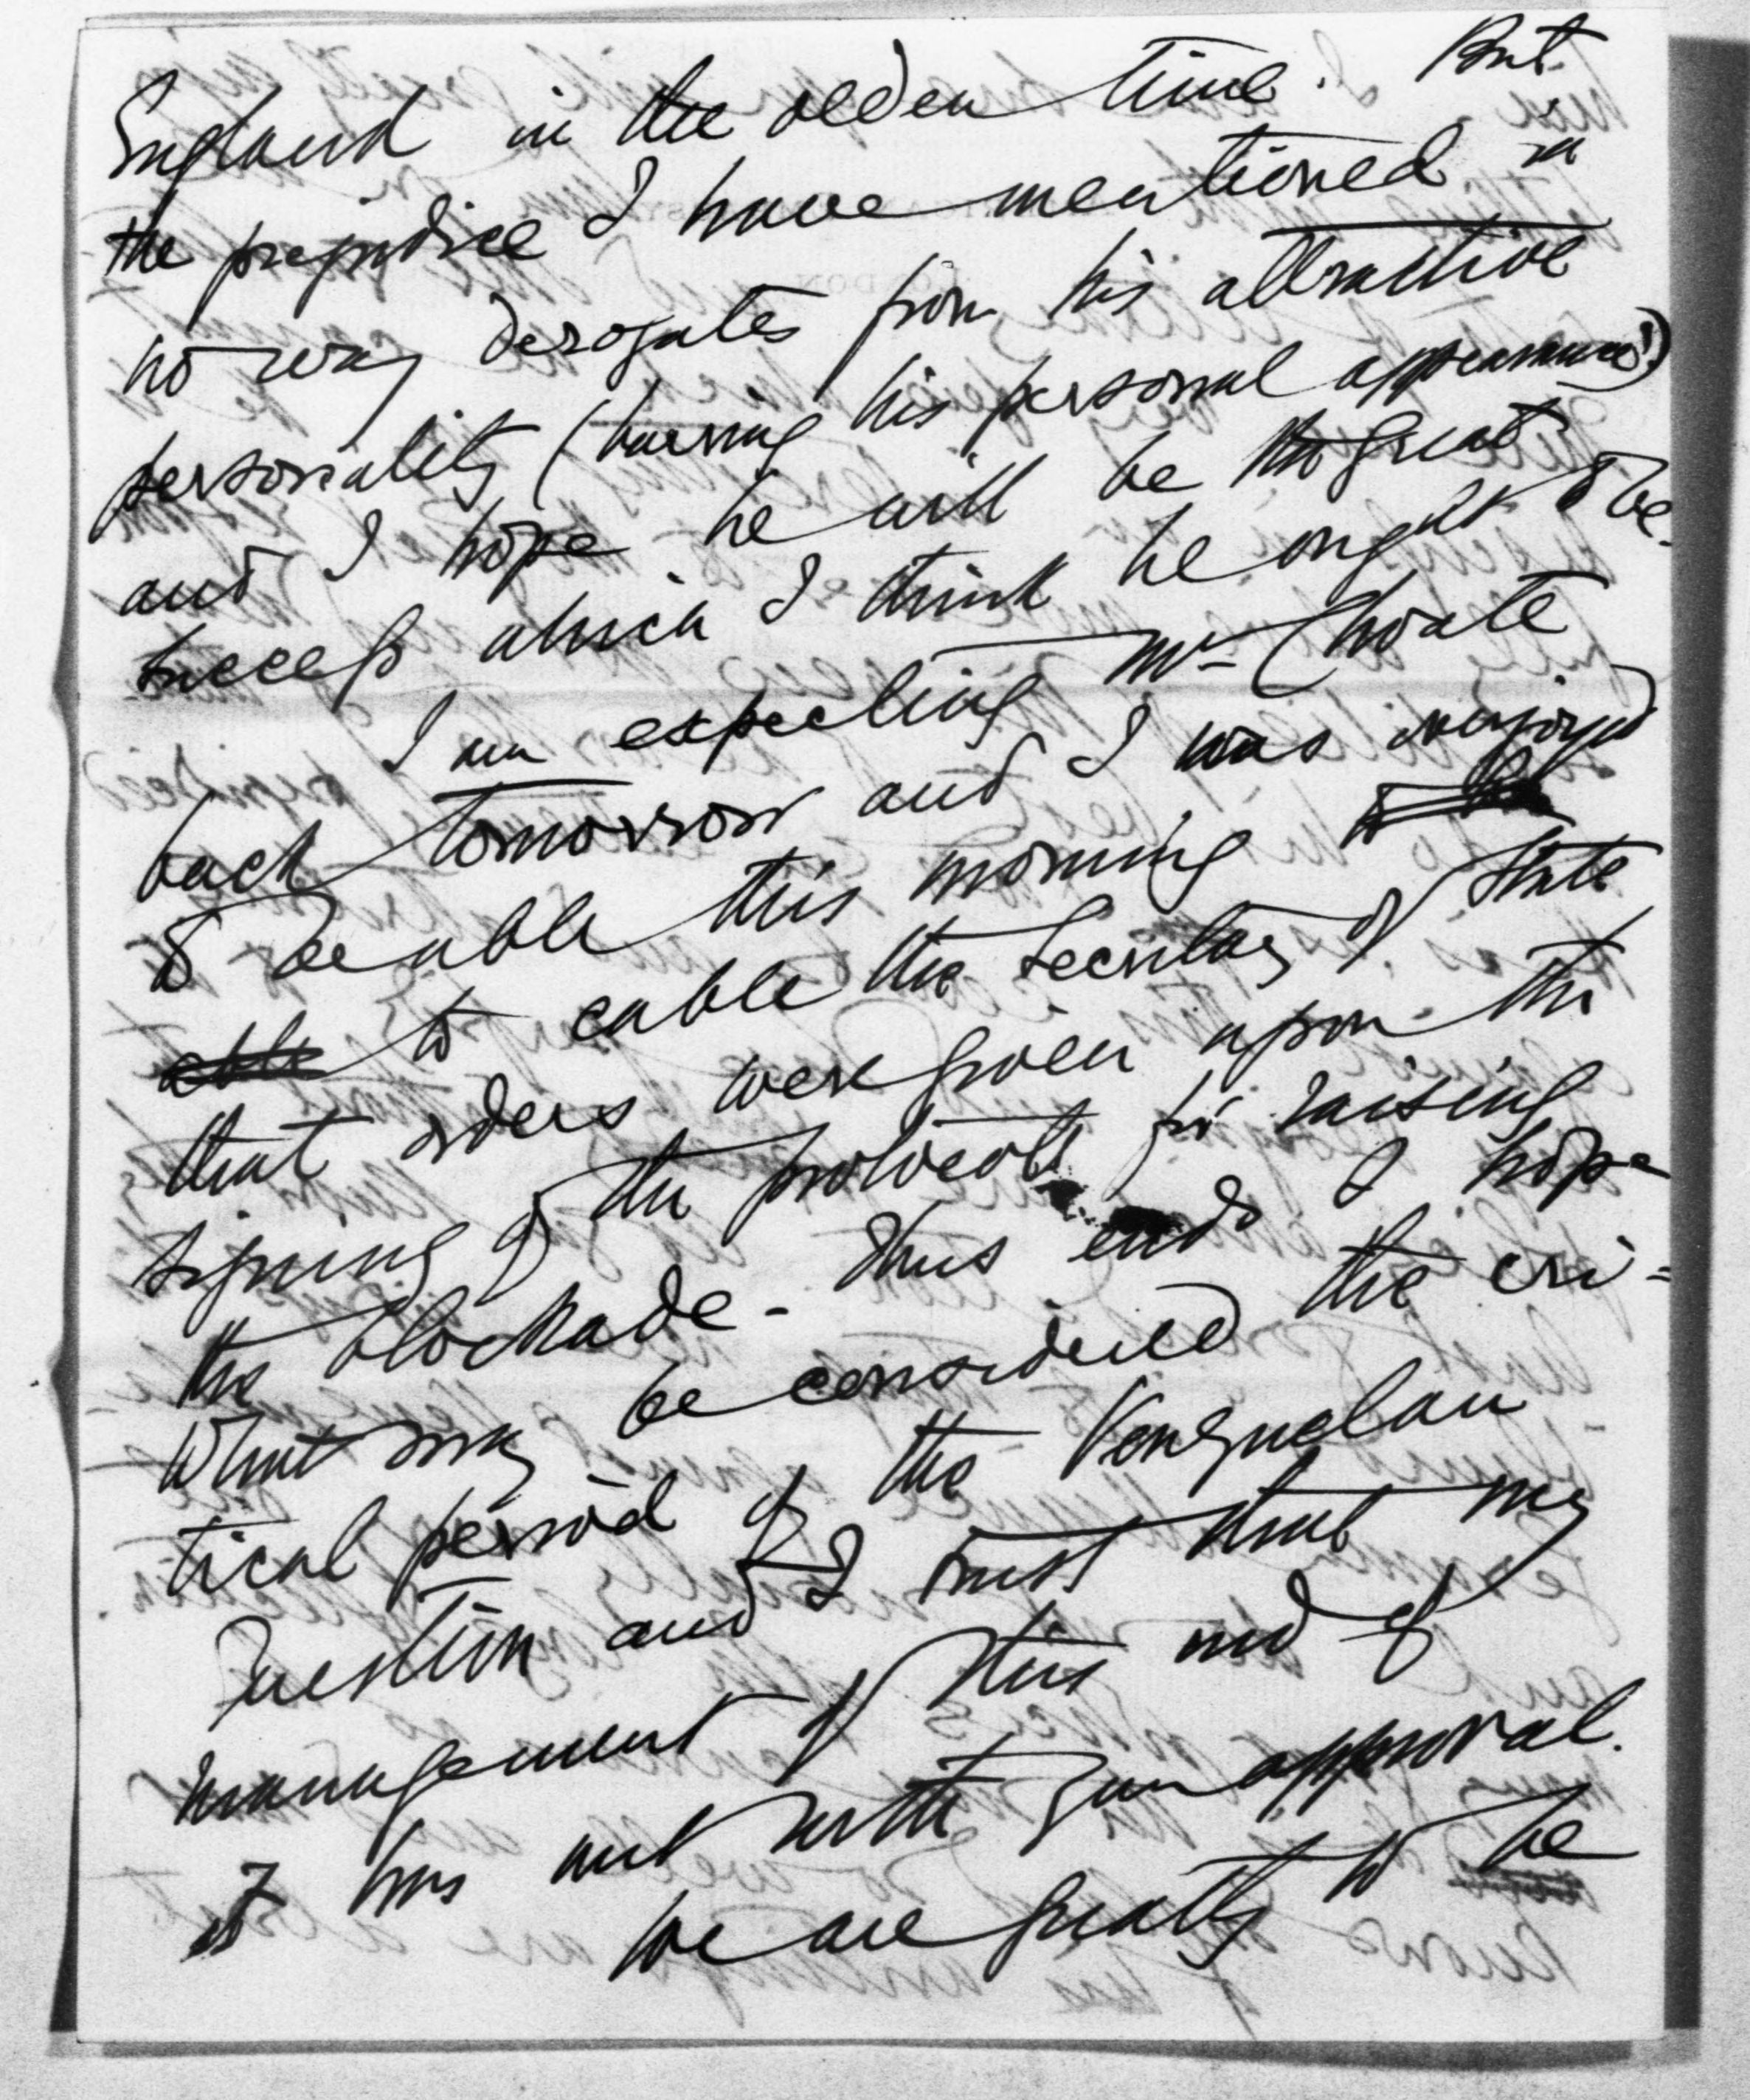 England in the olden time. But
the prejudice I have mentioned in
no way derogates from his attractive
personality (barring his personal appearance!)
and I hope he will be the great
success which I think he ought to be.
I am expecting Mr Choate
back tomorrow and I was
to be able this morning
to cable the Secretary of State
that orders were given upon the
signing of the protocols for raising
the blockade - Thus ends I hope
what may be considered the cri=
tical period of the Venezuelan
Question and I trust that my
management of this end of
it has met with your approval.
We are greatly to be